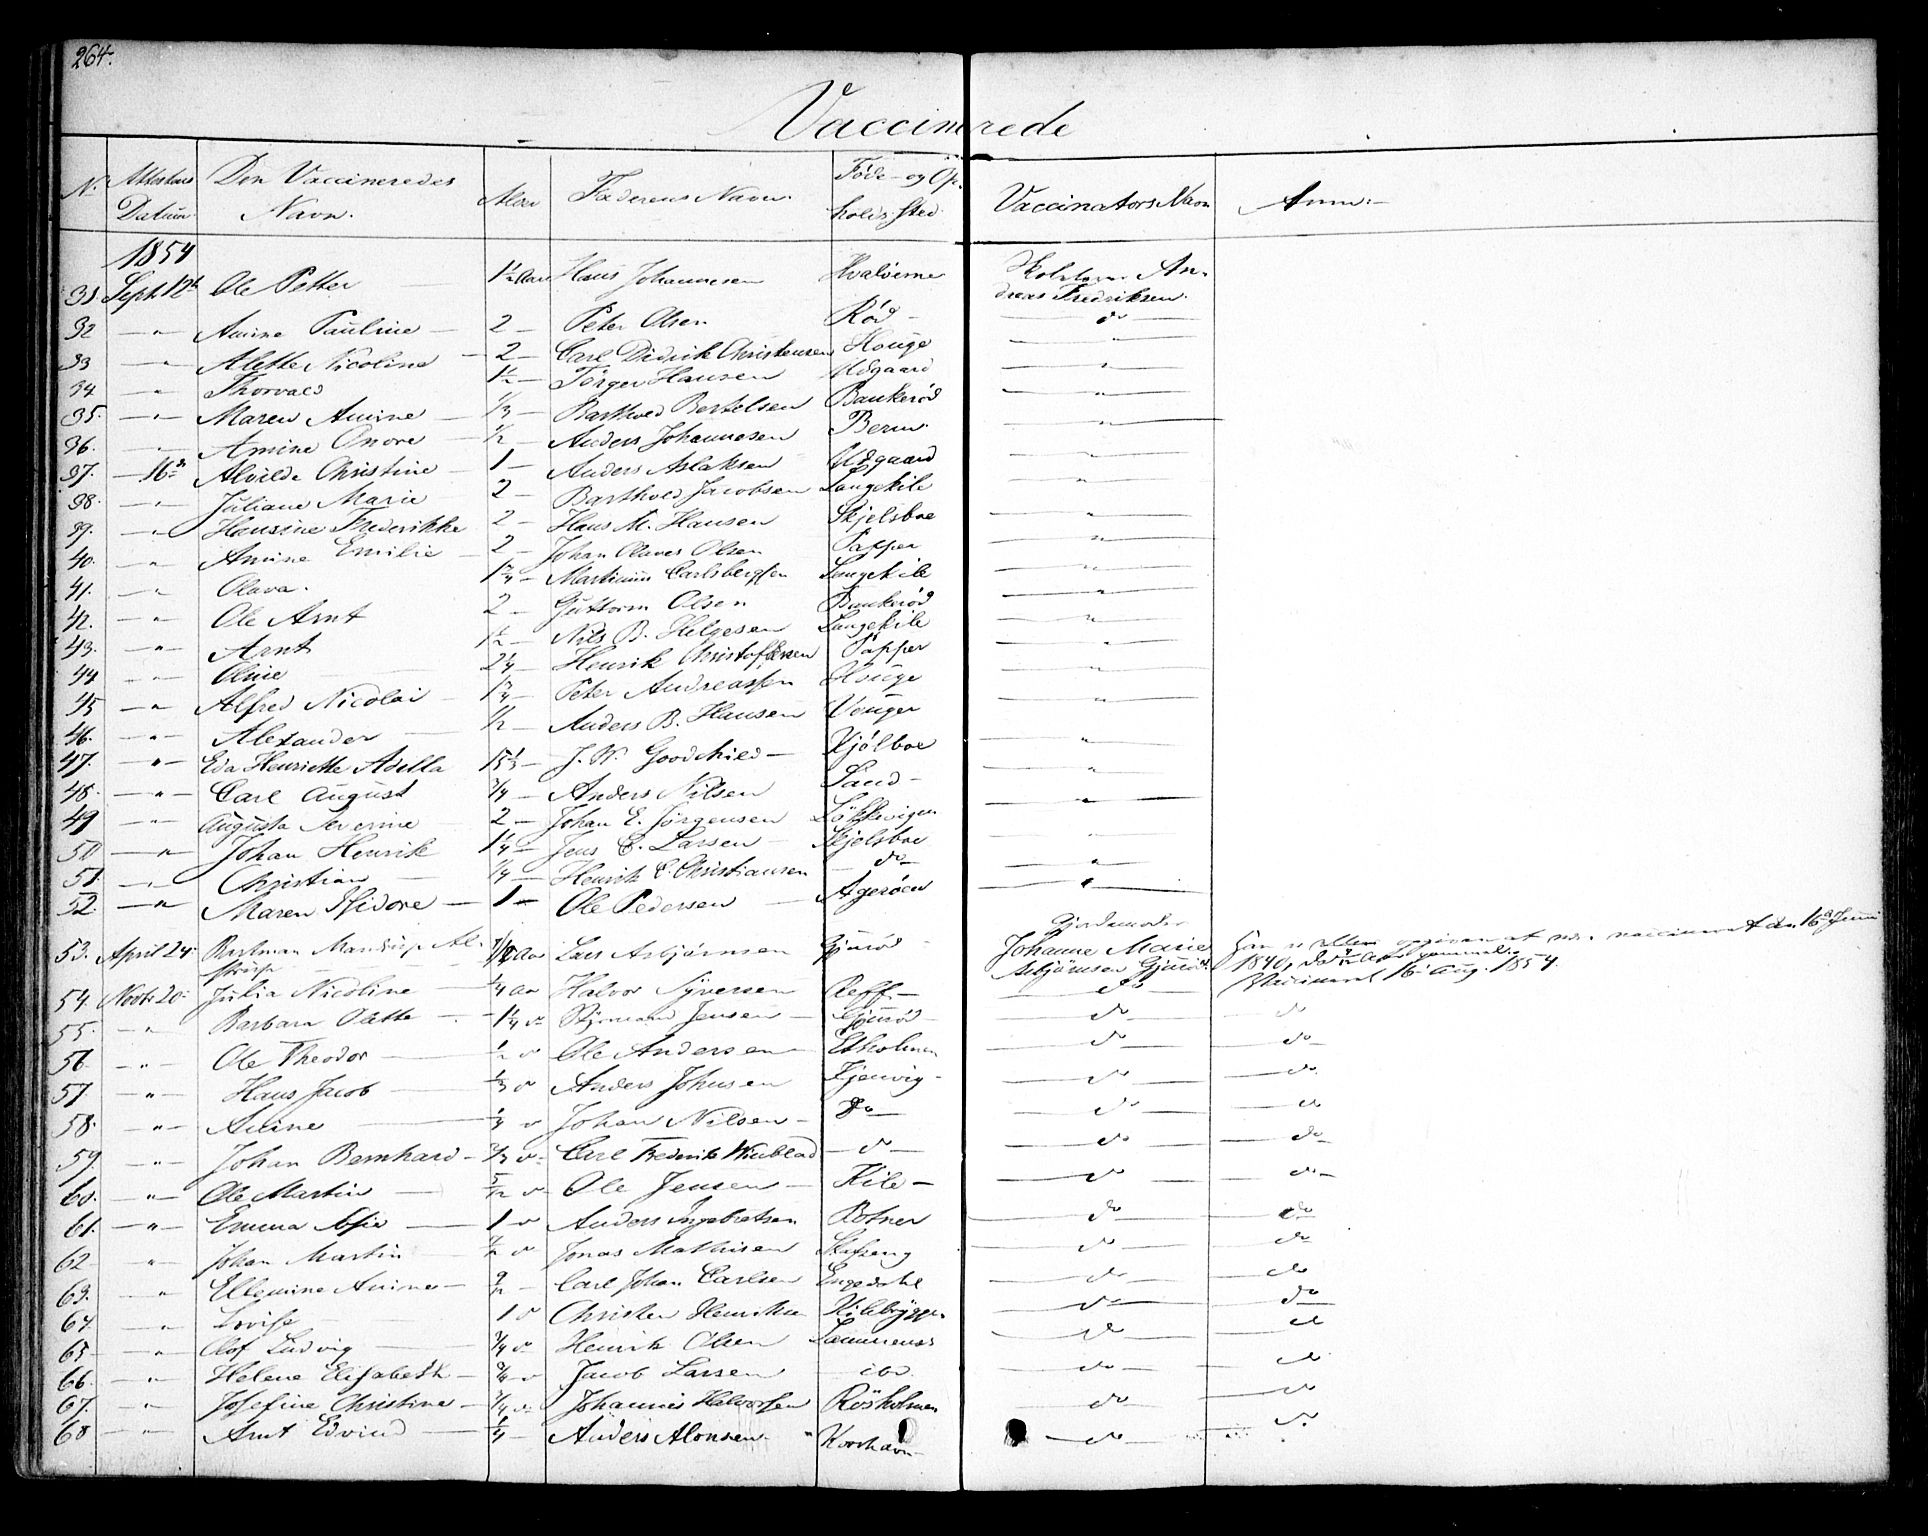 264.
Vaccinerede
N. Attestens Datum Den Vaccineredes Navn. Alder Faderens Navn. Føde- og Op- holds Sted. Vaccinators Navn Anm:
1854
31. Sept 12t Ole Petter 1½ Aar Hans Johannesen Hvaløerne Andreas Fredriksen.
32 — " — Amine Pauline — 2 — Peter Olsen Rød — do
33 — " — Alette Nicoline — 2 — Carl Didrik Christensen Houge — " —
34 — " — Thorvald 1½ — Törger Hansen Udgaard — " —
35. — " — Maren Amine — 1/3 — Barthoed Bertelsen Bankerød — " —
36. — " — Amine Onore — 1/2 — Anders Johannesen — " —
37. — 16de Alvilde Christine — 1 — Anders Aslaksen Udgaard — " —
38. — " — Juliane Marie 2 — Barthold Jacobsen Langekile — " —
39. — " — Hansine Frederikke 2 — Hans M. Hansen Skjelsboe — " —
40. — " — Amine Emilie — 2 — Johan Olaves Olsen Papper — " —
41. — " Olava. 1¾ — Martinius Carlsbergsen Langekile — " —
42. — " Ole Arnt 2 — Guttorm Olsen Bankerød — " —
43. — " — Arnt 1½ — Nils B. Helgesen Langekile — " —
44 — " — Oline 2¼ — Henrik Christofersen Papper — " —
45 — " — Alfred Nicolai — 1¾ — Peter Andreassen Houge — " —
46. — " — Alexander — 1/2 — Anders B. Hansen Vouger — " —
47. — " — Eda Henriette Adella 15 1/3 — J. W. Goodchild — Kjölboe — " —
48. — " — Carl August 3/4 — Anders Nilsen Sand — — " —
49 — " — Augusta Severine 2 — Johan E. Jørgensen Løkkevigen — " —
50 — " — Johan Henrik 1¼ — Jens C. Larsen — Skjelsboe — " —
51. — " — Christian — 1/4 — Henrik C. Christiansen do — " —
52. — " — Maren Isidore — 1 — Ole Pedersen — Agerøen — " —
53. April 24. Mandrup Al- Aar Lars Asbjørnsen Gjurød Gjordemoder Johanne Marie Asbjørnsen Gjurød
strup
vaccineret den 16de Juni
1840,
Vaccineret 16. Aug. 1854.
54. Novbr 20. Julia Nicoline — 1/4 Aar Halvor Syversen Reff — do
55. — " Barbara Olette — 1¼ do Jensen — Gjurød — do do
56. — " — Ole Theodor — 1/2 do Ole Andersen Ekholmen do do
57. — " — Hans Jacob — 1/3 do Anders Johnsen Kjenvig — do do
58. — " — Anine — 1/4 do Johan Nilsen — do — do do
59 — " — Johan Bernhard — 2/3 do Carl Frederik Wiublad — do — do do
60. — " — Ole Martin — 5/12 do Ole Jensen — Kile — do do
61. — " — Emma Sofie — 1 do Anders Ingebretsen Botner do do
62 — " — Johan Martin do Jonas Mathisen do do
63. — " Ellevine Anine — 9/12 — Carl Johan Carlsen Engedahl do do
64. — " Lovise 1 do Christen Henriksen Kilebryggen do do
65 — " — Olof Ludvig — 3/4 do Henrik Olsen Lammenes do do
66. — " — Helene Elisabeth — do Jacob Larsen ibd. do do
67. — " — Josefine Christine — 3/4 do Johannes Halvorsen Røsholmen do do
68 — " — Arnt Edvind — 1/4 — Anders Alonsen " Korshavn do do